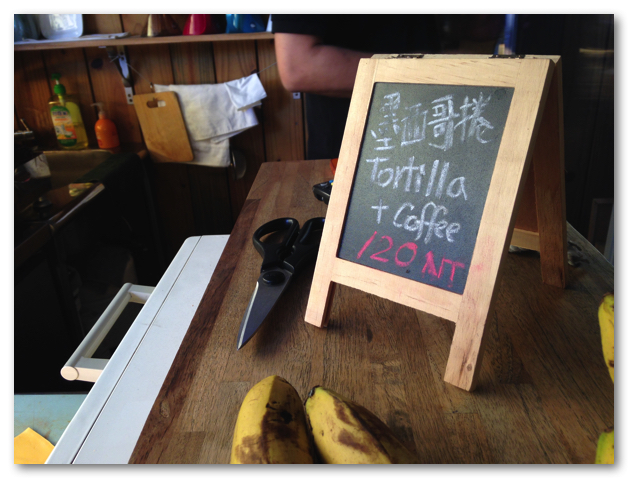 墨西哥捲
Tortilla
+ Coffee
120 NT